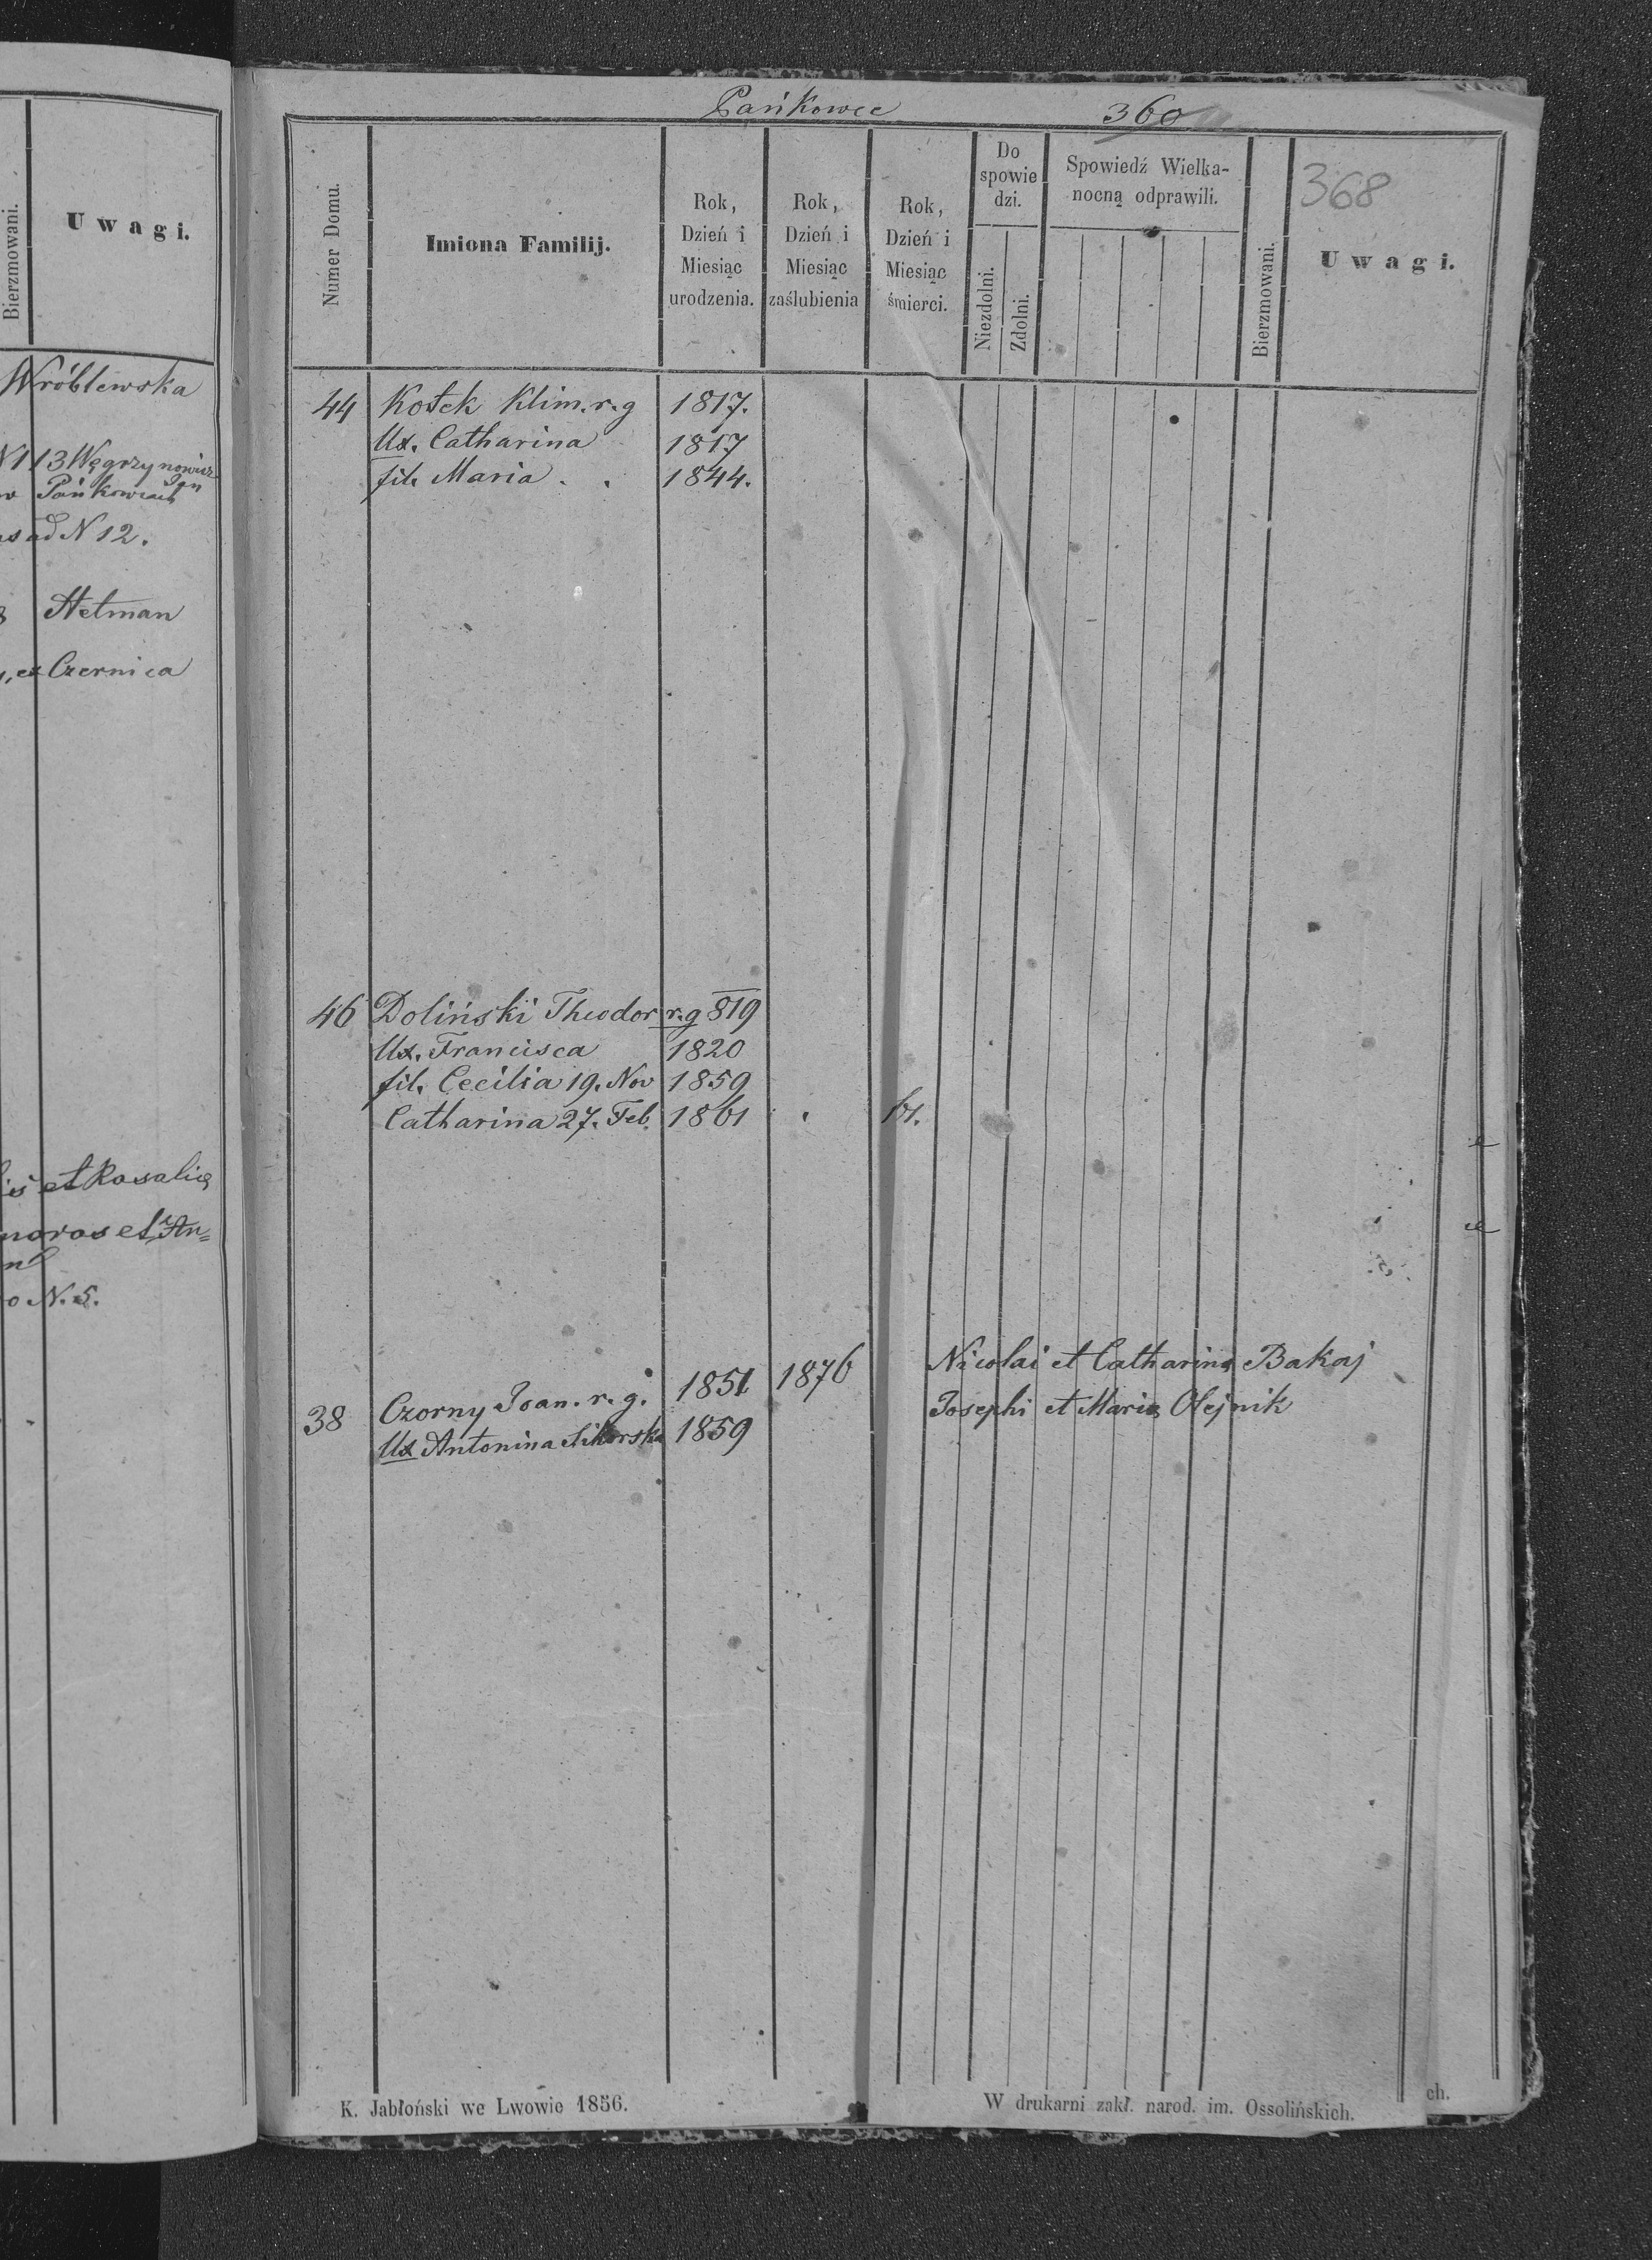 Bierzmowani.
U w a g i.
Wróblewska
N 113 Węgrzynowicz
Jan
w Pańkowcach
ad N 12.
Hetman
ex Czernica
et Rosalię
et An=
N. 5.
Pańkowce 360
368
Numer Domu.
Imiona Familij.
Rok, Dzień i Miesiąc urodzenia.
Rok, Dzień i Miesiąc zaślubienia
Rok, Dzień i Miesiąc śmierci.
Do spowie dzi.
Niezdolni.
Zdolni.
Spowiedź Wielka-
nocną odprawili.
Bierzmowani.
U w a g i.
44 Kotek Klim. r. g 1817.
Ux. Catharina 1817
fil. Maria . . 1844.
46 Doliński Theodor r. g 819
Ux. Francisca 1820
fil. Cecilia 19. Nov 1859
Catharina 27. Feb. 1861 . 61.
38 Czorny Joan. r. g. 1851 1876 Nicolai et Catharina Bakaj
Ux Antonina Sikorska 1859 Josephi et Maria Olejnik
K. Jabłoński we Lwowie 1856.
W drukarni zakł. narod. im. Ossolińskich.
ch.